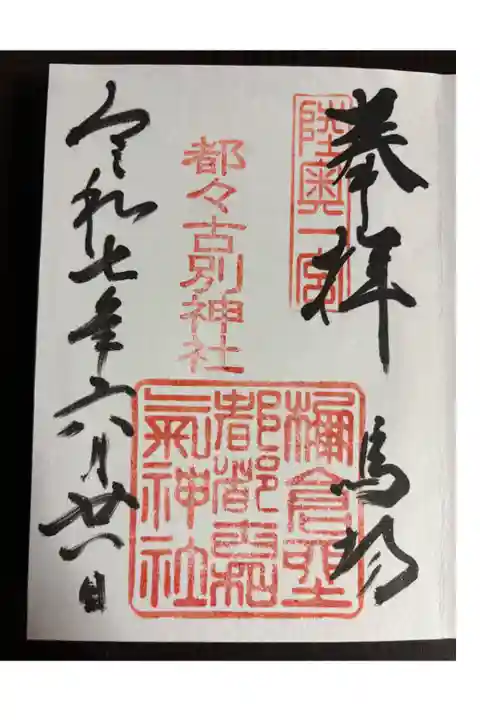 奉拝 馬場
陸奥一宮
都々古別神社
棚倉
都都古和
氣神社
令和七年六月廿八日